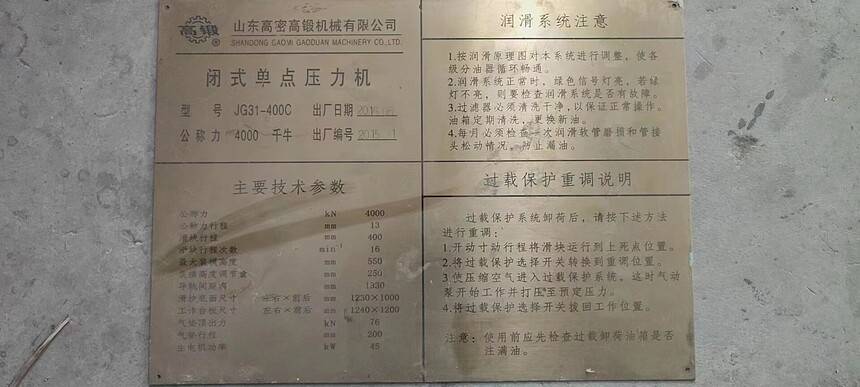 高锻
®
山东高密高锻机械有限公司
SHANDONG GAOMI GAODUAN MACHINERY CO.,LTD.
闭式单点压力机
型 号 JG31-400C 出厂日期
公称力 4000 千牛 出厂编号
主要技术参数
公称力 kN 4000
公称力行程 mm 13
滑块行程 mm 400
滑块行程次数 min⁻¹ 16
最大装模高度 mm 550
装模高度调节量 mm 250
导轨间距离 mm 1330
滑块底面尺寸 左右×前后 mm 1230×1000
工作台板尺寸 左右×前后 mm 1240×1200
气垫顶出力 kN 76
气垫行程 mm 200
主电机功率 kW 45
润滑系统注意
1.按润滑原理图对本系统进行调整，使各
级分油器循环畅通。
2.润滑系统正常时，绿色信号灯亮，若绿
灯不亮，则要检查润滑系统是否有故障。
3.过滤器必须清洗干净，以保证正常操作。
油箱定期清洗，更换新油。
4.每月必须检查一次润滑软管磨损和管接
头松动情况，防止漏油。
过载保护重调说明
过载保护系统卸荷后，请按下述方法
进行重调：
1.开动寸动行程将滑块运行到上死点位置。
2.将过载保护选择开关转换到重调位置。
3.使压缩空气进入过载保护系统，这时气动
泵开始工作并打压至预定压力。
4.将过载保护选择开关拨回工作位置。
注意：使用前应先检查过载卸荷油箱是否
注满油。